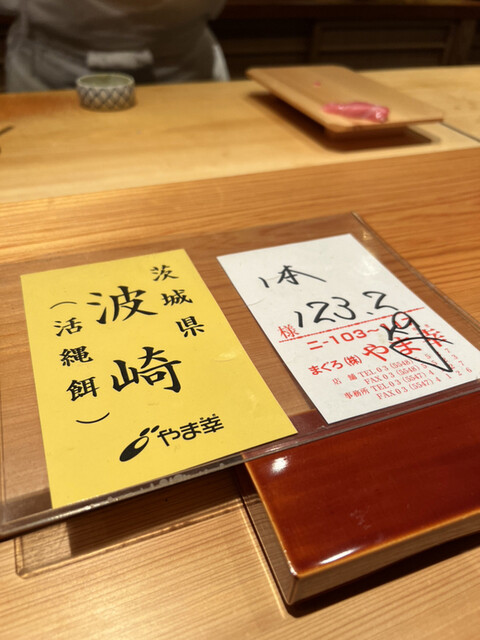 茨城県
波崎
(活縄餌)
やま幸
1本
123.2
様
ニ-103~
まぐろ(株)やま幸
店舗 TEL 03 (5547)
FAX 03 (5548)
事務所 TEL 03 (5547)
FAX 03 (5547)